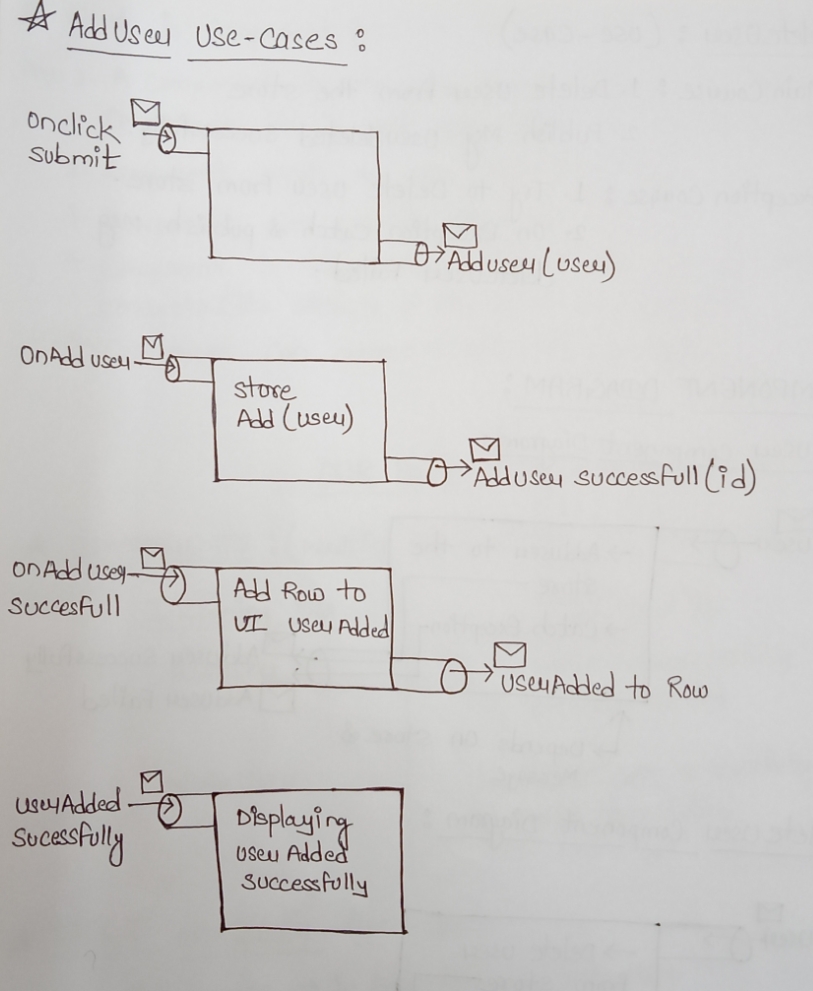 Add User Use-Cases :
onclick
submit
Adduser (user)
onAdd user
store
Add (user)
Adduser successfull (id)
onAdd user
Succesfull
Add Row to
UI user Added
userAdded to Row
userAdded
Sucessfully
Displaying
user Added
successfully